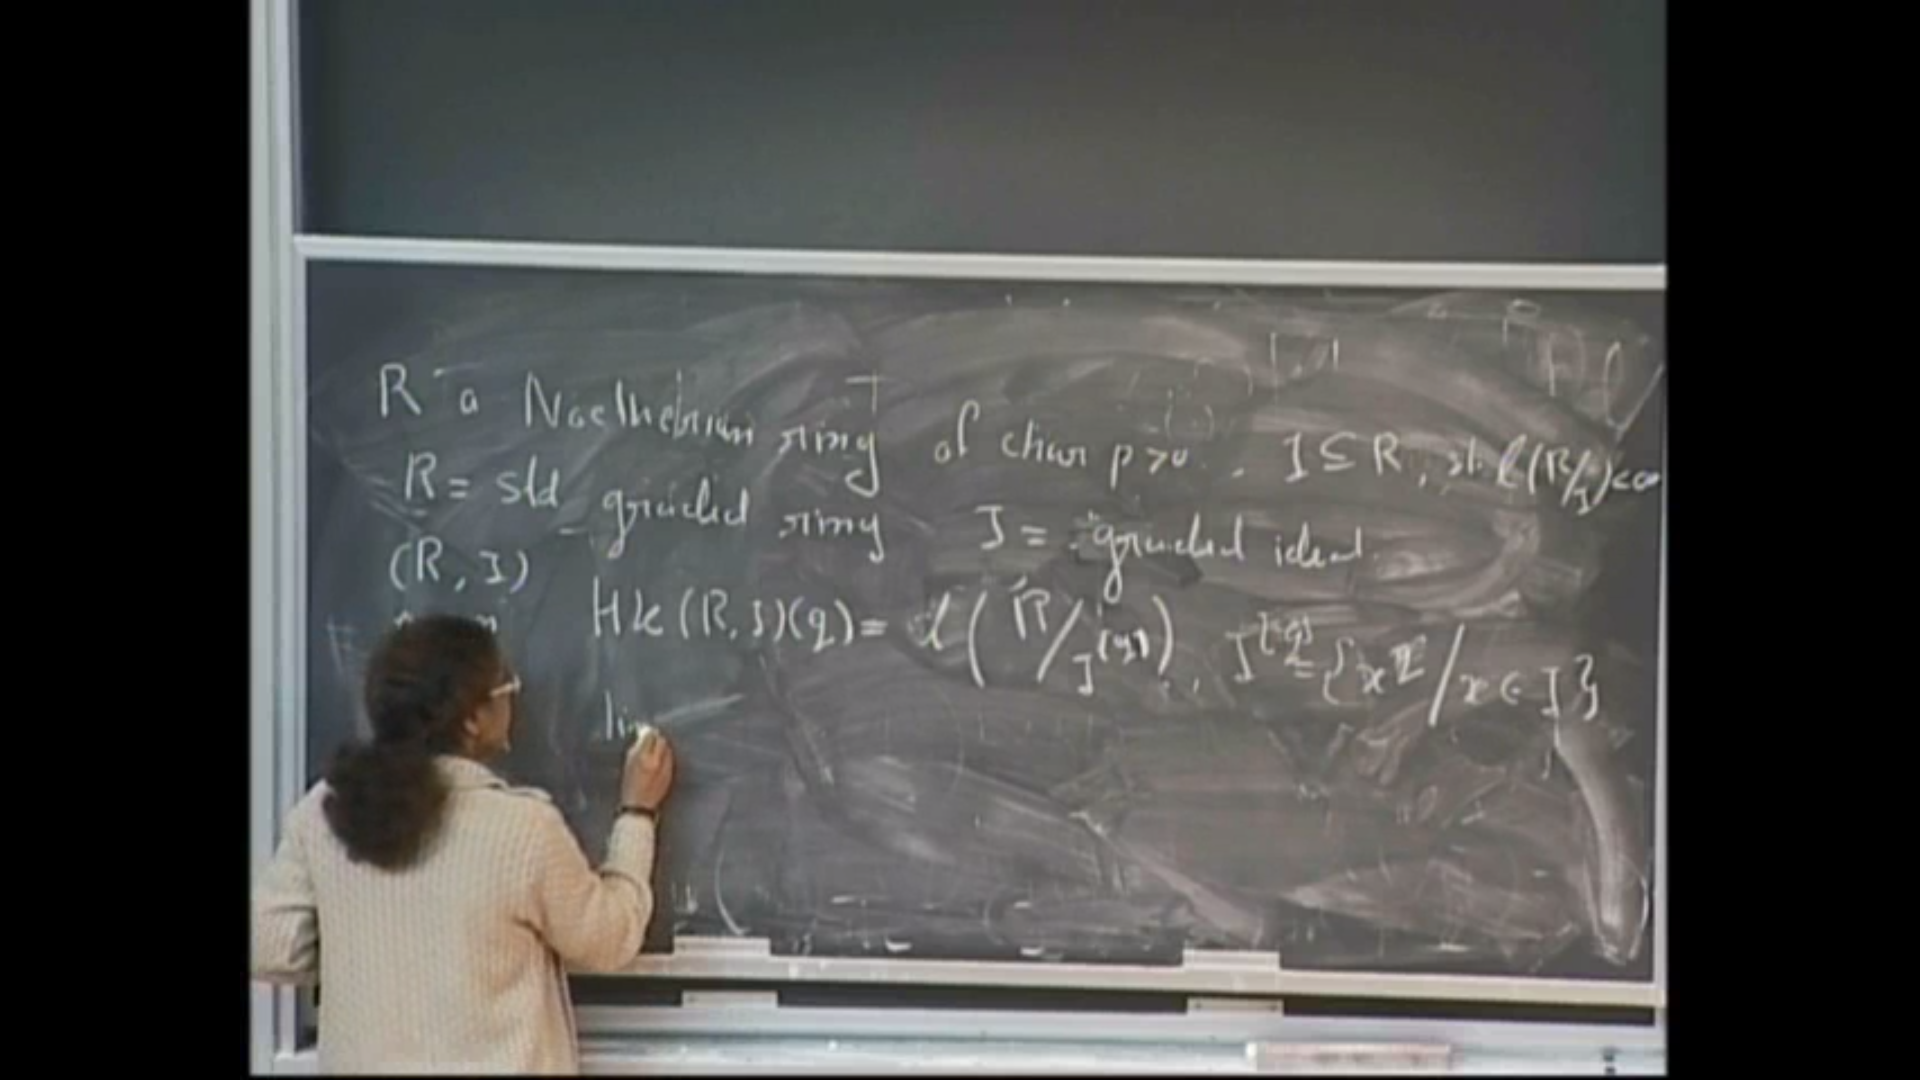 R a Noetherian ring of char p>0, I ⊆ R, s.t. ℓ(R/I)<∞
R = std graded ring I = graded ideal.
(R, I)
HK(R,I)(q) = ℓ(R/I^[q]), I^[q] = {x^q / x ∈ I}
lim